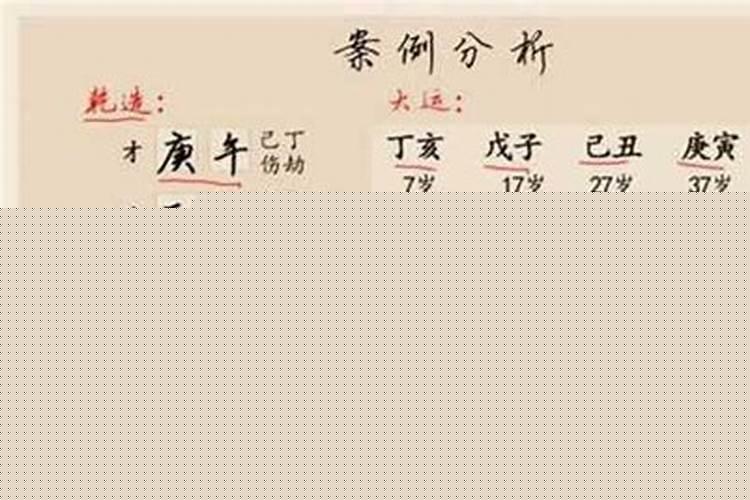 案例分析
乾造： 大运：
才 庚 午 己丁 丁亥 戊子 己丑 庚寅
伤劫
7岁 17岁 27岁 37岁